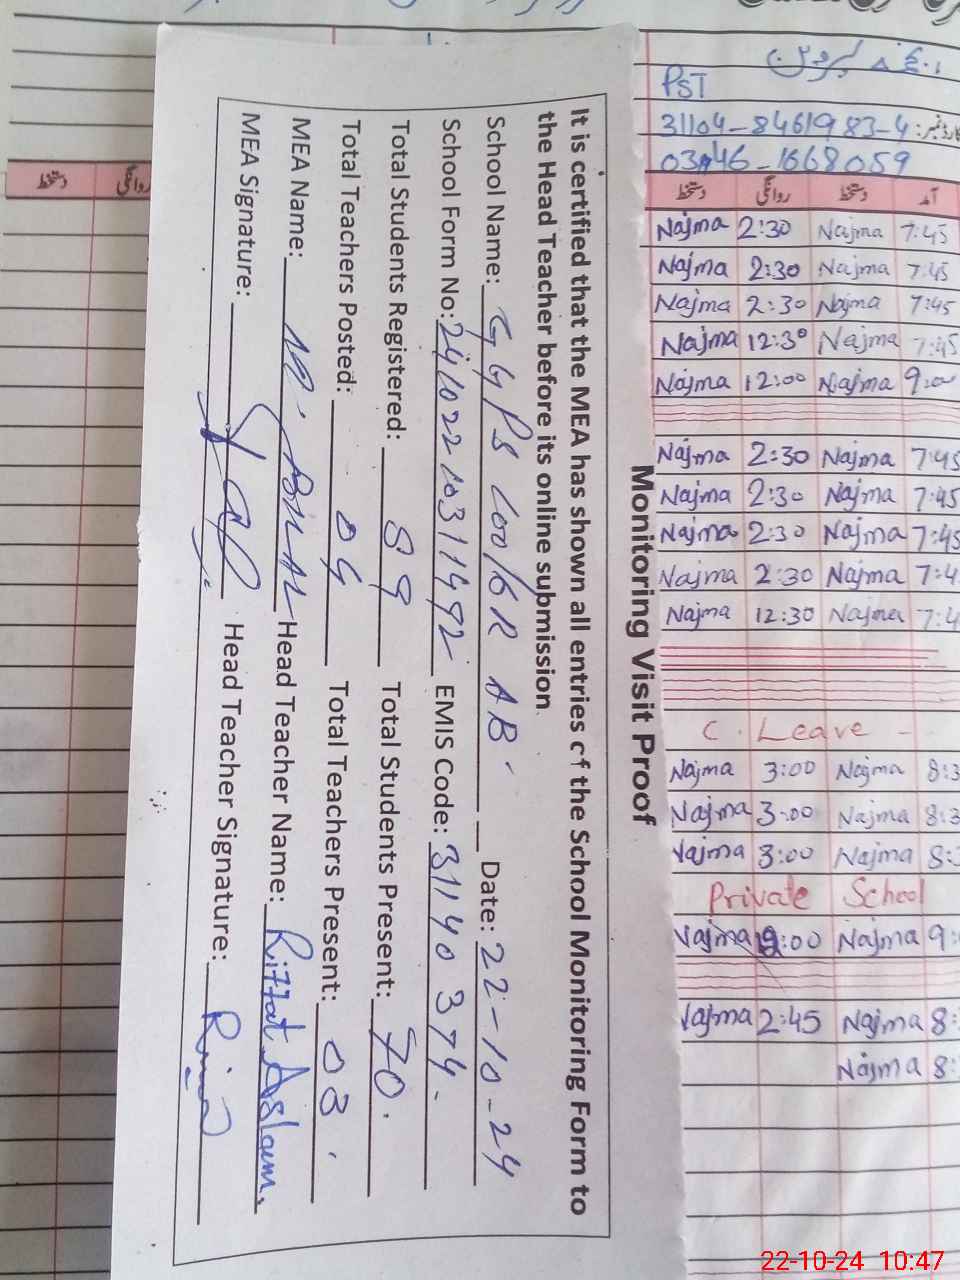 Monitoring Visit Proof
It is certified that the MEA has shown all entries of the School Monitoring Form to
the Head Teacher before its online submission
School Name: GGPS 200/6R AB. Date: 22-10-24
School Form No: 241022103111492 EMIS Code: 31140374.
Total Students Registered: 89 Total Students Present: 70.
Total Teachers Posted: 04 Total Teachers Present: 03.
MEA Name: M. BILAL Head Teacher Name: Riffat Aslam.
MEA Signature: Head Teacher Signature:
PST
31104-8461983-4
0346-1668059
آمد دستخط روانگی دستخط
Najma 2:30 Najma 7:45
Najma 2:30 Najma 7:45
Najma 2:30 Najma 7:45
Najma 12:30 Najma 7:45
Najma 12:00 Najma 9:00
Najma 2:30 Najma 7:45
Najma 2:30 Najma 7:45
Najma 2:30 Najma 7:45
Najma 2:30 Najma 7:4
Najma 12:30 Najma 7:4
C. Leave -
Najma 3:00 Najma 8:3
Najma 3:00 Najma 8:3
Najma 3:00 Najma 8:3
Private School
Najma :00 Najma 9:
Najma 2:45 Najma 8:
Najma 8:
روانگی دستخط
22-10-24 10:47